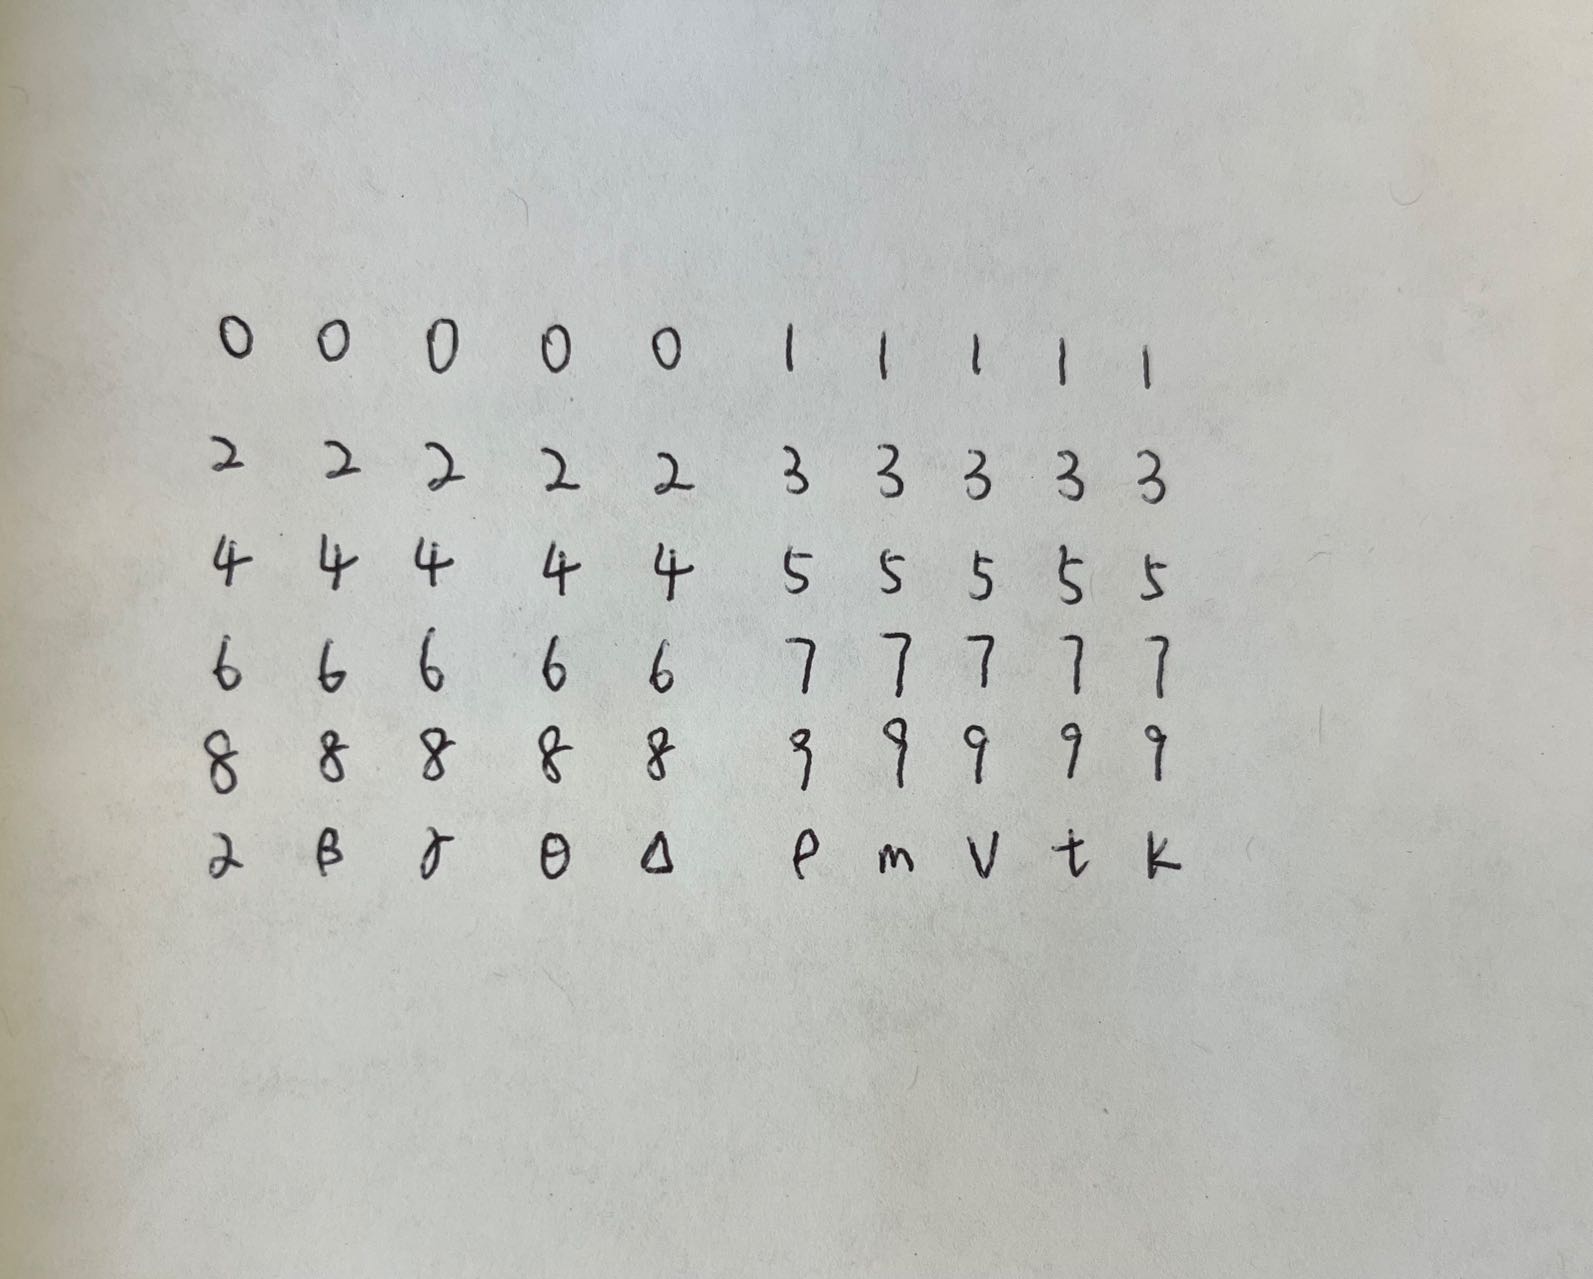 0 0 0 0 0 1 1 1 1 1
2 2 2 2 2 3 3 3 3 3
4 4 4 4 4 5 5 5 5 5
6 6 6 6 6 7 7 7 7 7
8 8 8 8 8 9 9 9 9 9
α β γ θ Δ ρ m V t k